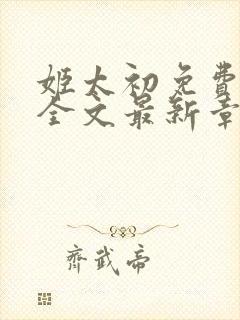 姬太初免費
全文最新章
齊武帝